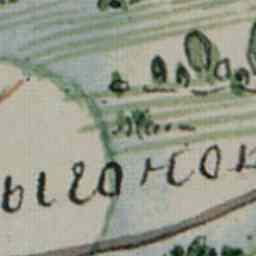 ыгонок